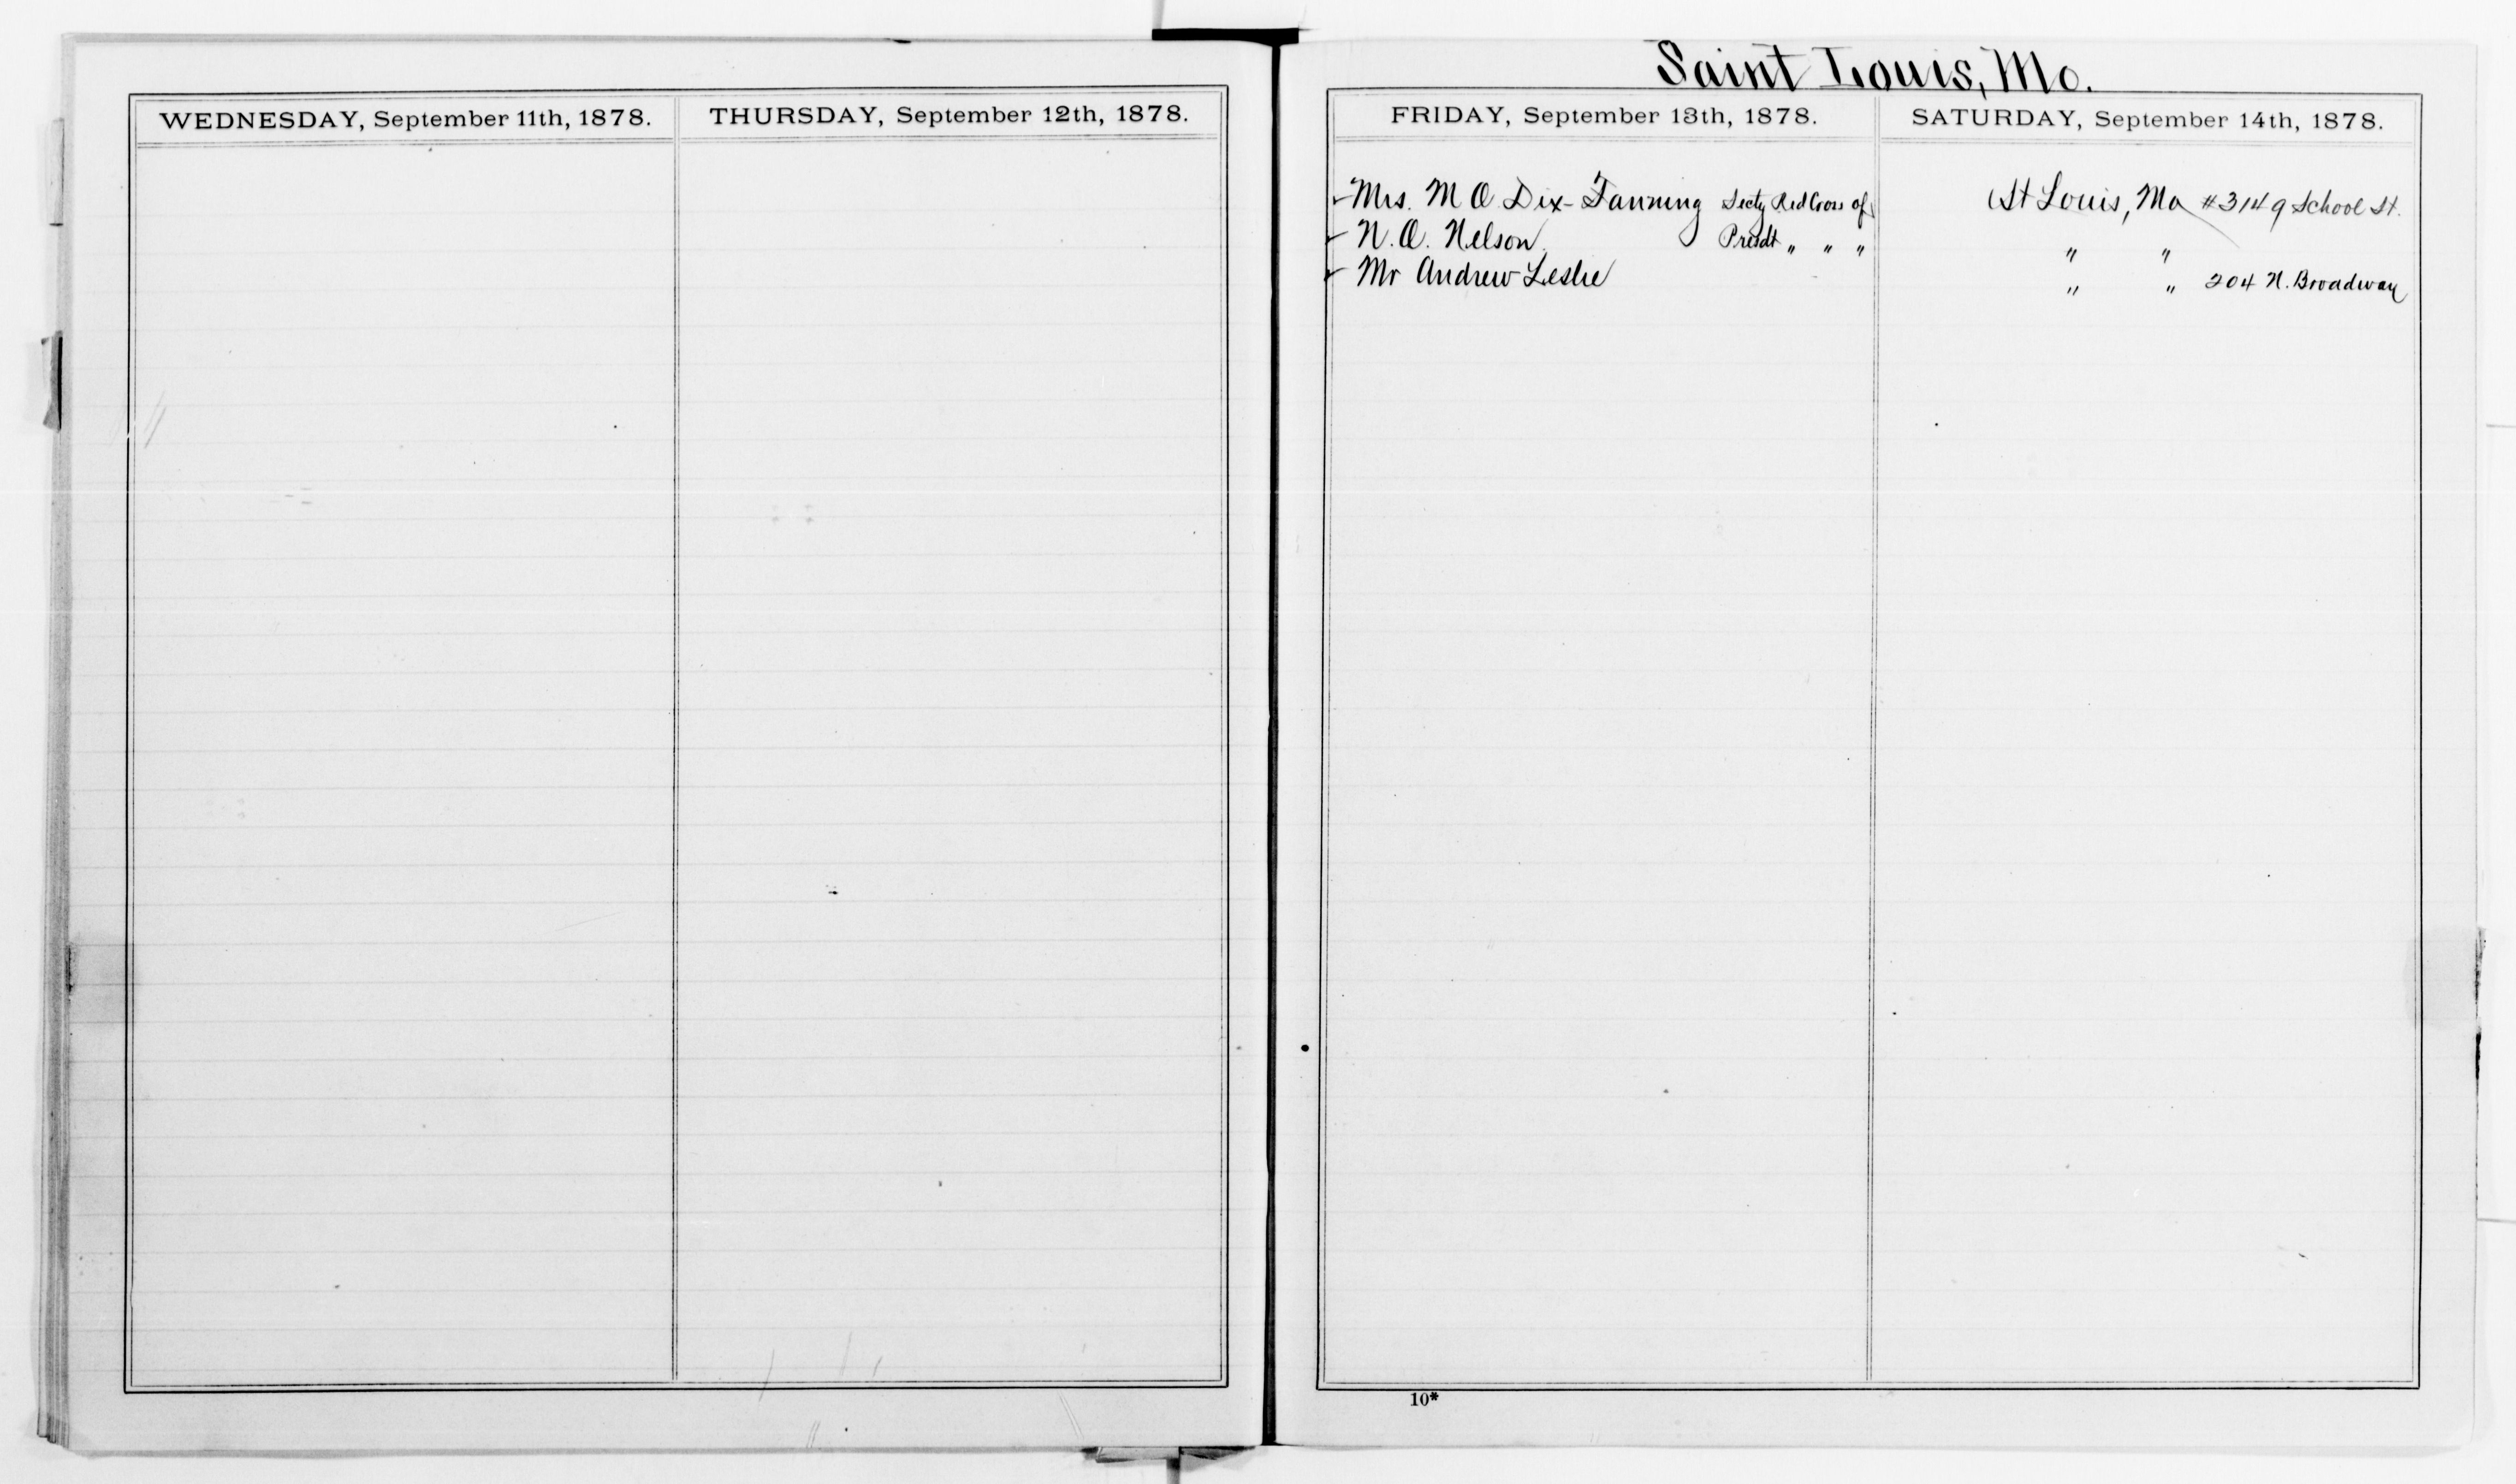 WEDNESDAY, September 11th, 1878.
THURSDAY, September 12th, 1878.
Saint Louis, Mo.
FRIDAY, September 13th, 1878.
SATURDAY, September 14th, 1878.
Mrs. M O Dix-Fanning Secty Red Cross of St Louis, Mo #3149 School St.
N. O. Nelson Presdt " " " " "
Mr Andrew Leslie " " 204 N. Broadway
10*